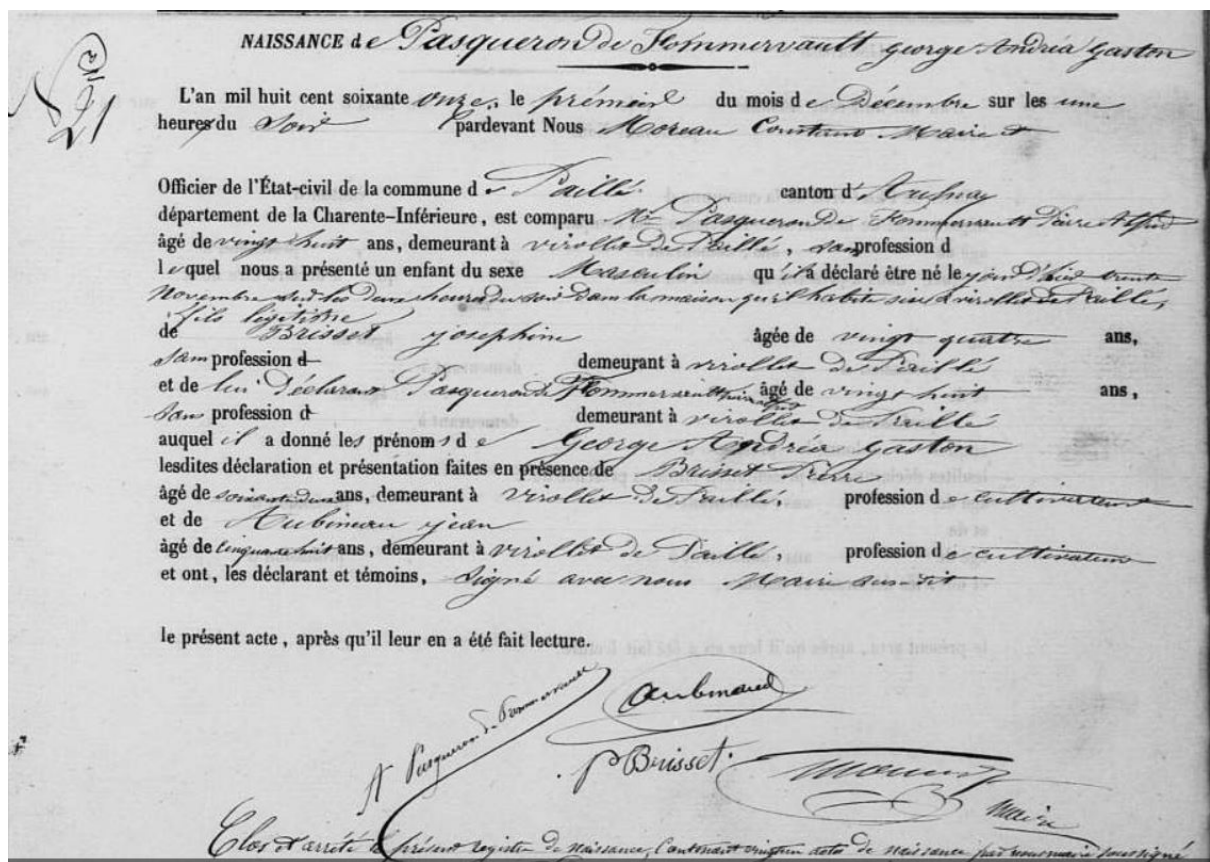 N° 21
NAISSANCE de Pasqueron de Fommervault George Andréa Gaston
L'an mil huit cent soixante onze, le prémier du mois de Décembre sur les une
heures du Soir pardevant Nous Moreau Constant Maire et
Officier de l'État-civil de la commune de Paillé canton d'Aulnay
département de la Charente-Inférieure, est comparu Mr Pasqueron De Fommervault Pierre Alfred
âgé de vingt huit ans, demeurant à virollet de Paillé, sans profession d
lequel nous a présenté un enfant du sexe Masculin qu'il a déclaré être né le jour d'hier trente
Novembre sur les deux heures du soir dans la maison qu'il habite sise à virollet de Paillé,
fils légitime
de Brisset josephine âgée de vingt quatre ans,
sans profession d demeurant à virollet de Paillé
et de lui déclarant Pasqueron de Fommervault pierre alfred âgé de vingt huit ans,
sans profession d demeurant à virollet de Paillé
auquel il a donné les prénoms de George Andréa Gaston
lesdites déclaration et présentation faites en présence de Brisset Pierre
âgé de soixante deux ans, demeurant à virollet de Paillé, profession de cultivateur
et de Aubineau jean
âgé de cinquante huit ans, demeurant à virollet de Paillé, profession de cultivateur
et ont, les déclarant et témoins, signé avec nous Maire sus-dit
le présent acte, après qu'il leur en a été fait lecture.
A Pasqueron de Fommervault
Aubineau
P Brisset
Moreau
Maire
Clos et arrêté le présent registre de naissance, Contenant vingt un actes de naissance par nous maire soussigné